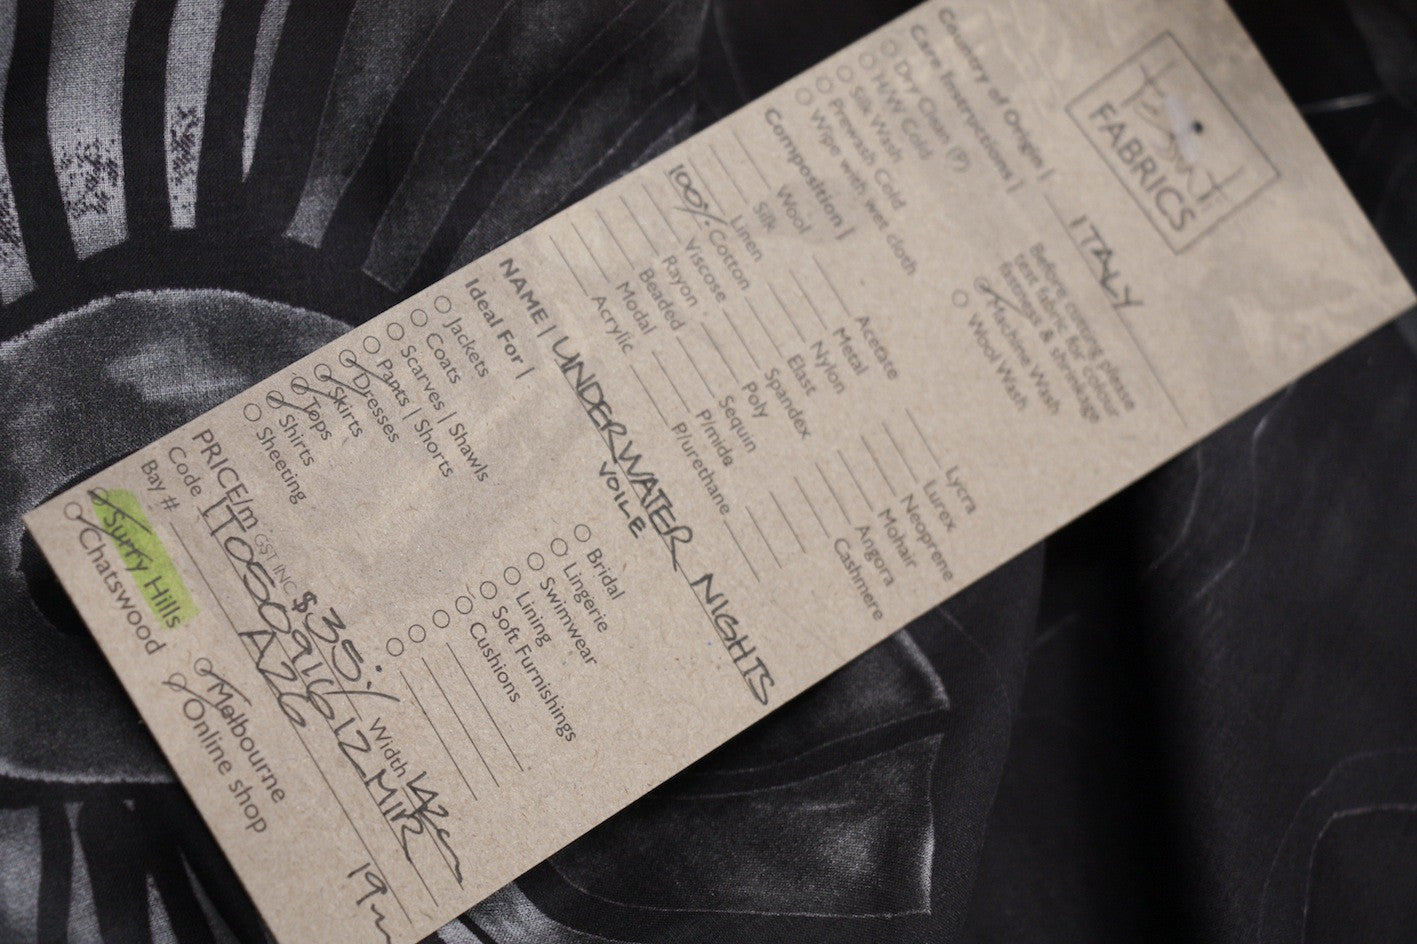 Tessuti
FABRICS
Country of Origin | ITALY
Care Instructions |
Before cutting please
test fabric for colour
fastings & shrinkage
Dry Clean (P)
H/W Cold
Silk Wash
Prewash Cold
Wipe with wet cloth
Machine Wash
Wool Wash
Composition |
Wool
Silk
Linen
100% Cotton
Viscose
Rayon
Beaded
Modal
Acrylic
Acetate
Metal
Nylon
Elast
Spandex
Poly
Sequin
P/mide
P/urethane
Lycra
Lurex
Neoprene
Mohair
Angora
Cashmere
NAME | UNDERWATER NIGHTS
VOILE
Ideal For |
Jackets
Coats
Scarves | Shawls
Pants | Shorts
Dresses
Skirts
Tops
Shirts
Sheeting
Bridal
Lingerie
Swimwear
Lining
Soft Furnishings
Cushions
PRICE/m GST INC $35
Width 142cm
Code ITOS091612 MIR
Bay # A26
19m
Surry Hills
Chatswood
Melbourne
Online shop